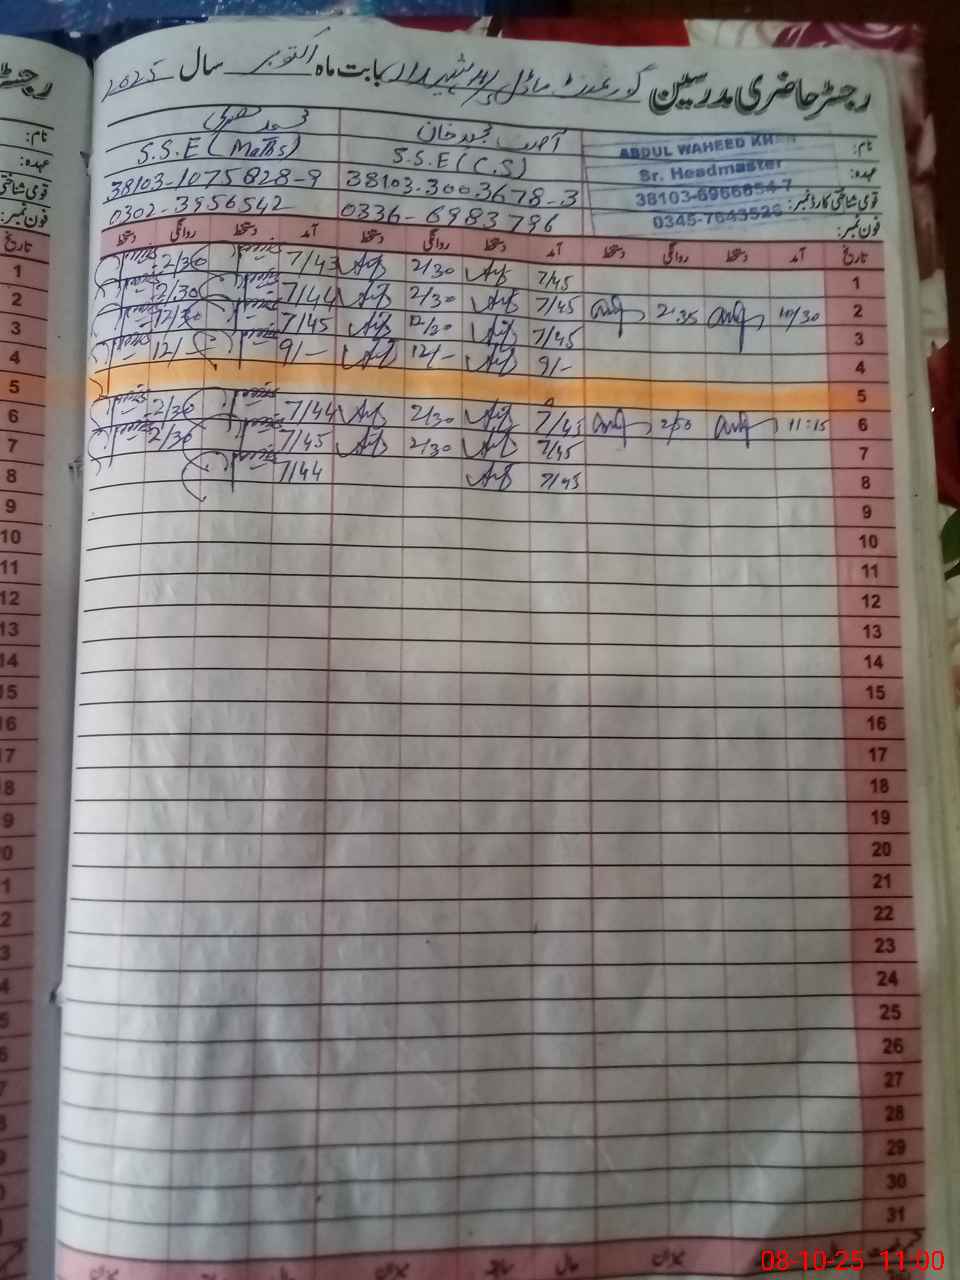 رجسٹر حاضری مدرسین گورنمنٹ ماڈل بابت ماہ اکتوبر سال 2025
نام: ABDUL WAHEED KHAN آصف مجید خان محمد
عہدہ: Sr. Headmaster S.S.E (C.S) S.S.E (Maths)
قومی شناختی کارڈ نمبر: 38103-6966654-7 38103-3003678-3 38103-1075828-9
فون نمبر: 0345-7643526 0336-6983796 0302-3956542
تاریخ آمد دستخط روانگی دستخط آمد دستخط روانگی دستخط آمد دستخط روانگی دستخط تاریخ
1 7/45 2/30 7/43 2/30 1
2 10/30 2:35 7/45 2/30 7/44 2/30 2
3 7/45 12/20 7/45 12/30 3
4 9/- 12/- 9/- 12/- 4
5 5
6 11:15 2/50 7/45 2/30 7/44 2/30 6
7 7/45 2/30 7/45 2/30 7
8 7/45 7/44 8
9 9
10 10
11 11
12 12
13 13
14 14
15 15
16 16
17 17
18 18
19 19
20 20
21 21
22 22
23 23
24 24
25 25
26 26
27 27
28 28
29 29
30 30
31 31
08-10-25 11:00